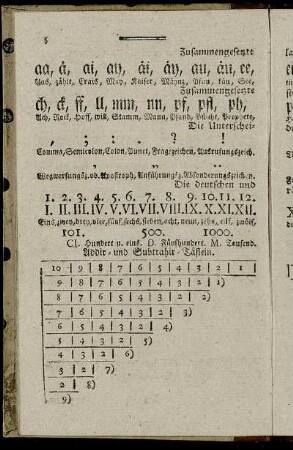 Zusammengesetzte
aa, å, ai, ay, åi, åy, au, åu, ee,
Aas, zählt, Crais, May, Kaiser, Mäynz, Pfau, säu, See,
Zusammengesetzte
ch, ck, ff, ll, mm, nn, pf, pfl, ph,
Ach, Rock, Hoff, will, Stamm, Mann, Pfand, Prophete,
Die Unterschei-
, ; : . ? !
Comma, Semicolon, Colon, Punct, Fragezeichen, Ausrufungszeich.
Wegwerfungsz. od. Apostroph, Einführungsz. Absonderungszeich.
Die Deutschen und
1. 2. 3. 4. 5. 6. 7. 8. 9. 10. 11. 12.
I. II. III. IV. V. VI. VII. VIII. IX. X. XI. XII.
Eins, zwey, drey, vier, fünf, sechs, sieben, acht, neun, zehn, eilf, zwölf,
101. 500. 1000.
CI. Hundert u. eins. D. Fünfhundert. M. Tausend.
Addir- und Subtrahir-Täflein.
10 9 8 7 6 5 4 3 2 1)
9 8 7 6 5 4 3 2)
8 7 6 5 4 3 2 3)
7 6 5 4 3 2 4)
6 5 4 3 2 5)
5 4 3 2 6)
4 3 2 7)
3 2 8)
2 9)